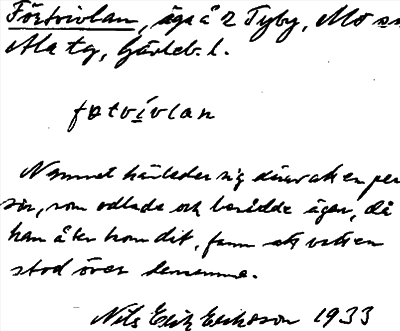 Förtvivlan, äga å 2 Tyby, Mo sn
Ala tg, Gävleb. l.
fɷtvívlan
Namnet härleder sig därav att en per
son, som odlade och beredde ägan, då
han åter kom dit, fann att vatten
stod över densamma.
Nils Erik Eriksson 1933